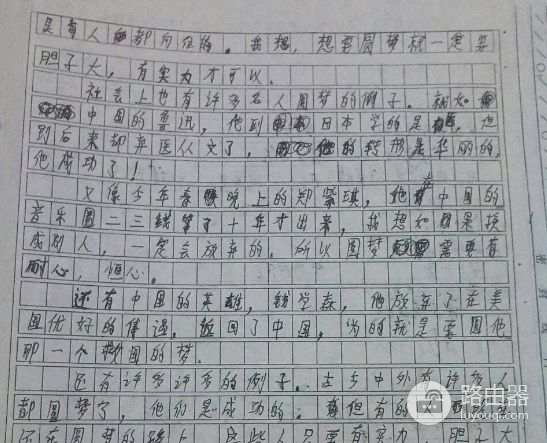 是每人都向往的。我想，想要圆梦就一定要
胆子大，有实力才可以。
社会上也有许多名人圆梦的例子。例如
中国的鲁迅，他到日本学的是医，但
到后来却弃医从文了，他的转形是华丽的，
他成功了！
又像今年春晚上的郑紫琪，她在中国的
音乐圆二三线等了十年才出来，我想如果换
成别人，一定会放弃的。所以圆梦需要有
耐心，恒心。
还有中国的英雄，钱学森，他放弃了在美
国优好的待遇，返回了中国，为的就是要圆他
那一个救国的梦。
还有许多许多的例子。古今中外有许多人
都圆梦了，他们是成功的；但有的
还在圆梦的路上，这些人只要有实力，胆子大
路由器
luyouqi.com